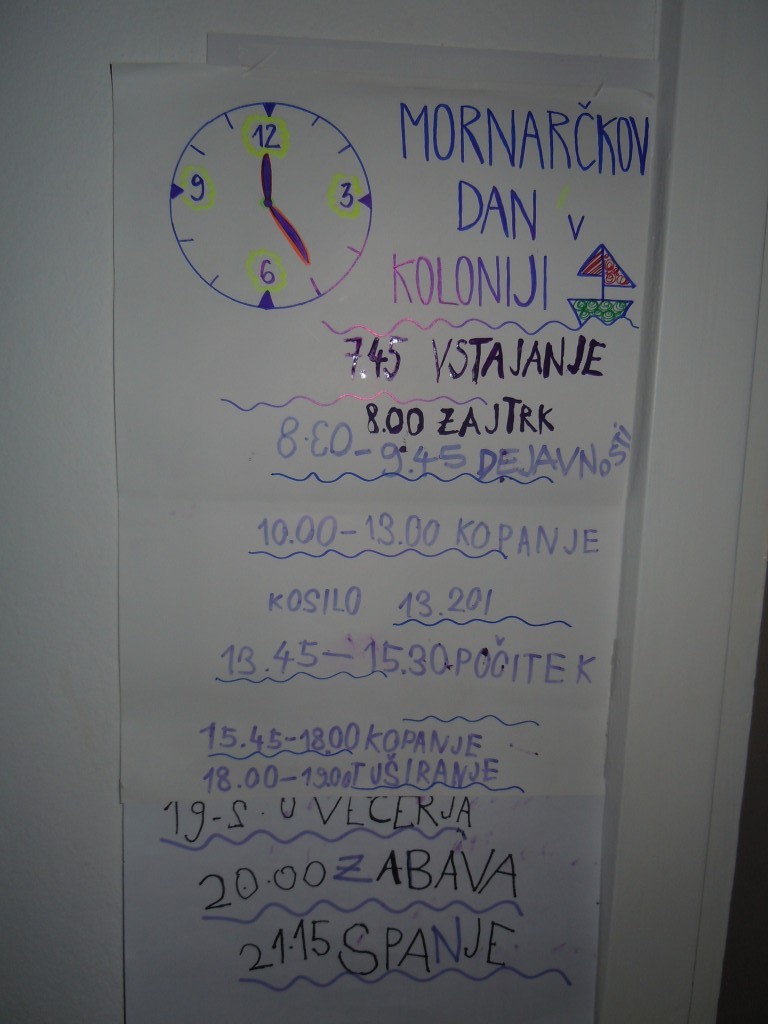 12
9
3
6
MORNARČKOV
DAN V
KOLONIJI
7.45 VSTAJANJE
8.00 ZAJTRK
8.30-9.45 DEJAVNOSTI
10.00-13.00 KOPANJE
KOSILO 13.20
13.45-15.30 POČITEK
15.45-18.00 KOPANJE
18.00-19.00 TUŠIRANJE
VEČERJA
20.00 ZABAVA
21.15 SPANJE